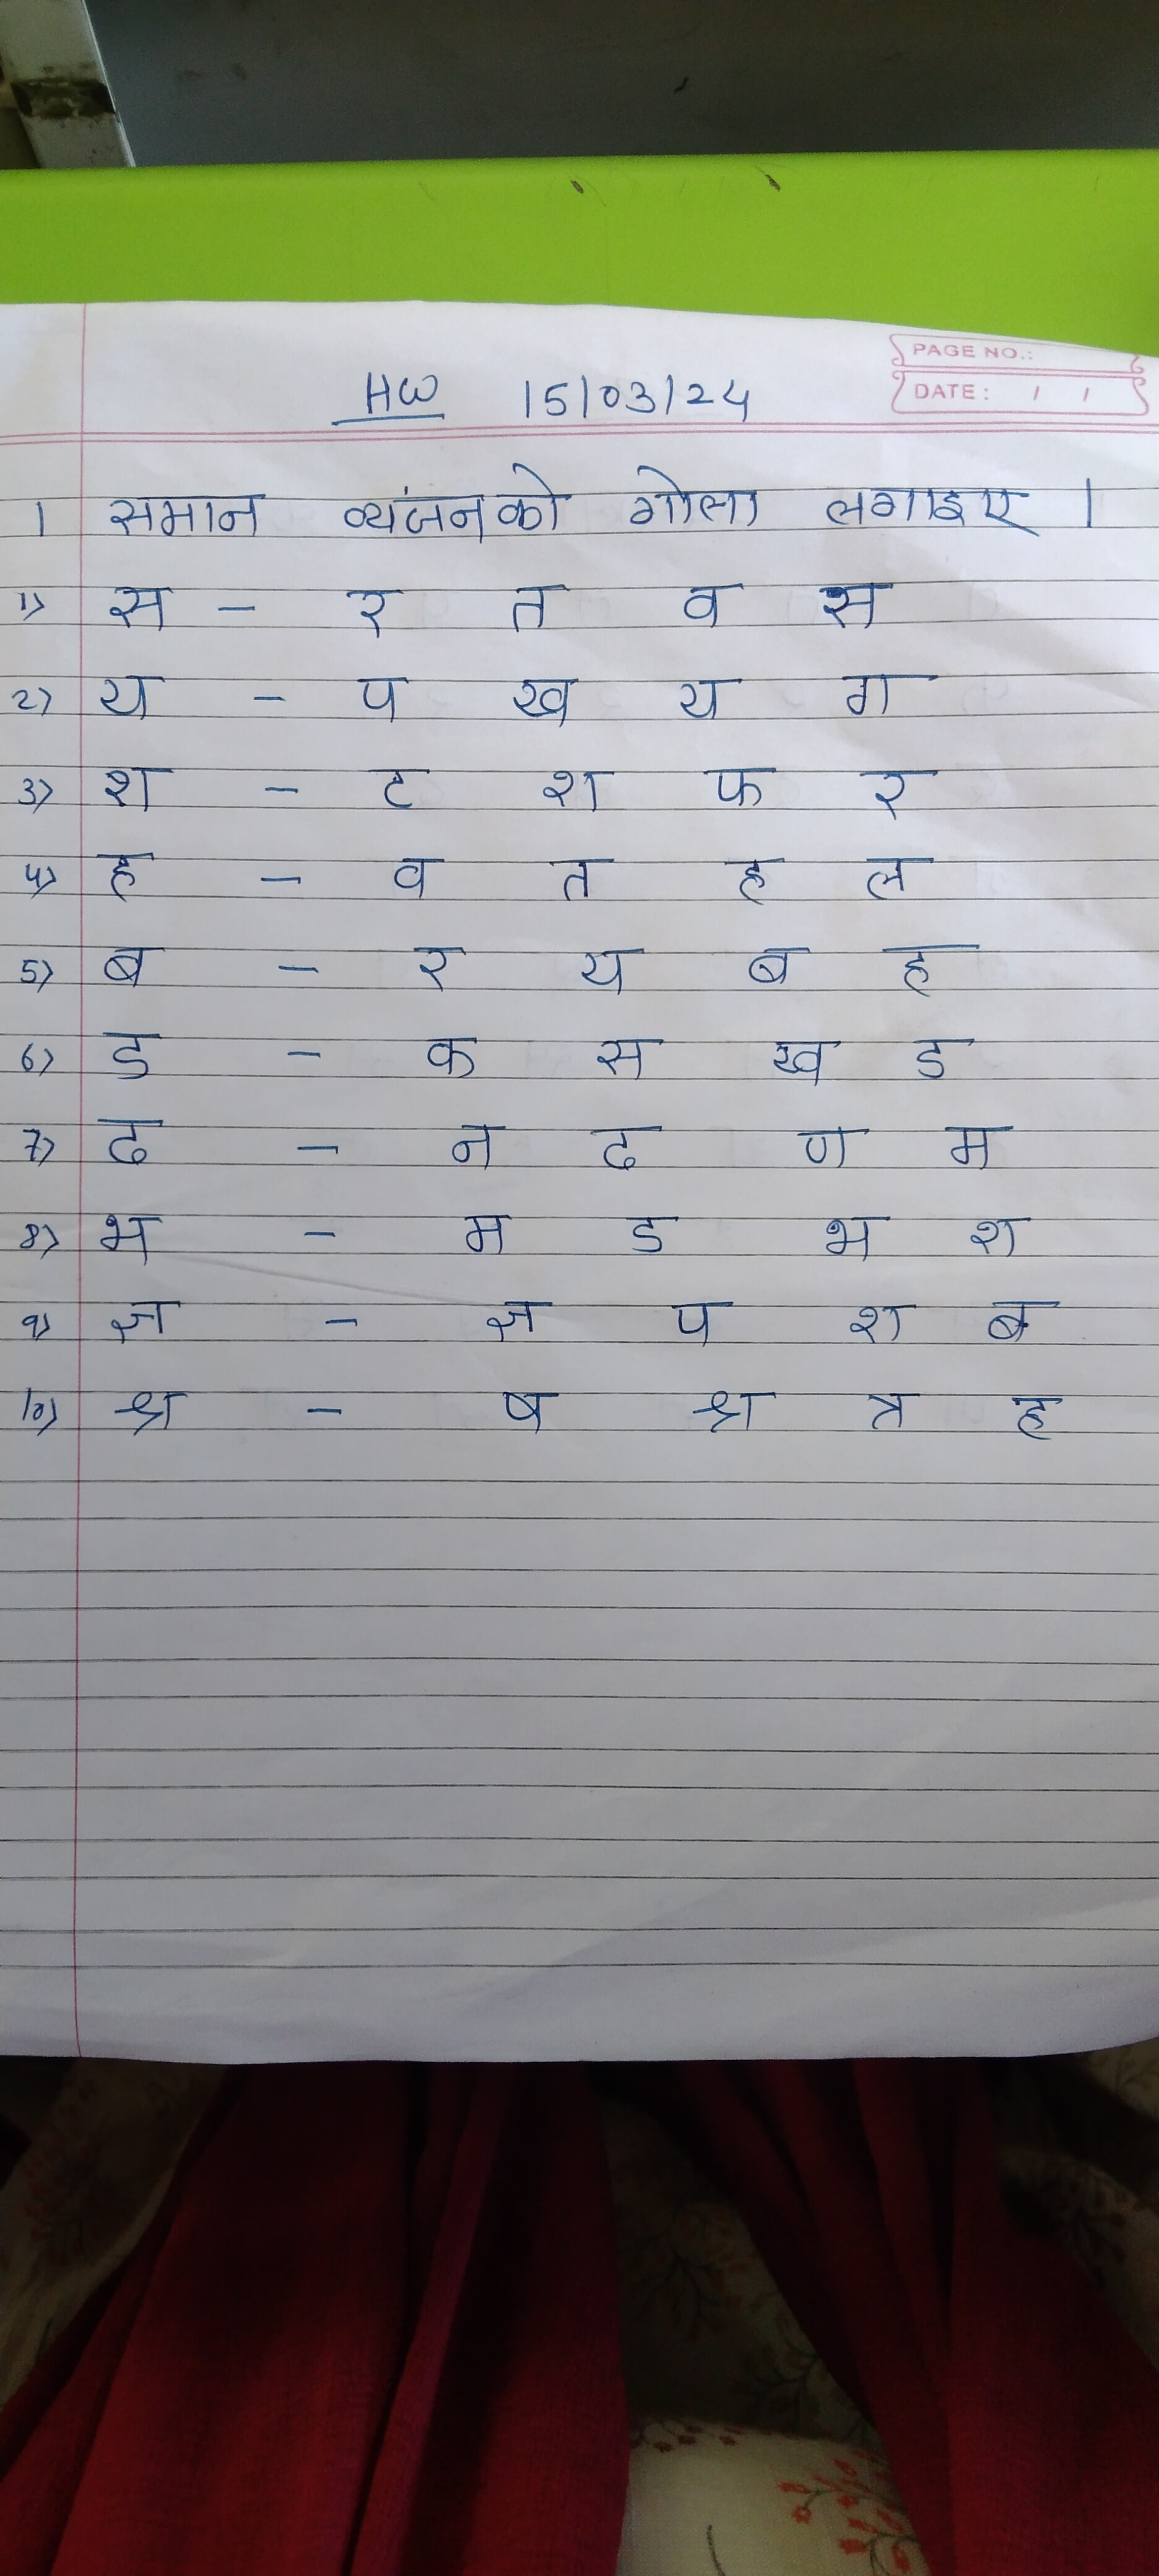 PAGE NO.:
DATE: / /
HW 15/03/24
1 समान व्यंजन को गोला लगाइए |
1) स - र त व स
2) य - प ख य ग
3) श - ट श फ र
4) ह - व त ह ल
5) ब - र य ब ह
6) ड - क स ख ड
7) ढ - न ढ ण म
8) भ - म ड भ श
9) ज्ञ - ज्ञ प श ब
10) श्र - ष श्र त्र ह